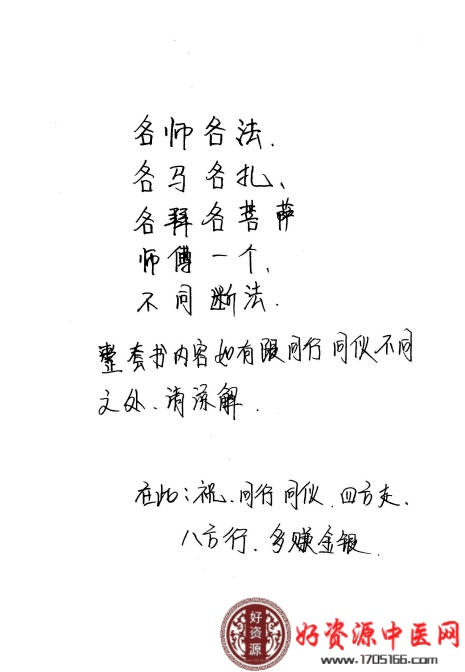 各师各法.
各马各扎、
各拜各菩萨
师傅一个,
不同断法.
整套书内容如有跟同行同伙不同
之处、请谅解.
在此:祝、同行同伙、四方走、
八方行、多赚金银.
好资源
好资源中医网
www.1705166.com